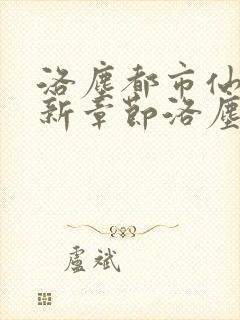 洛塵都市仙
新章節洛塵
盧斌